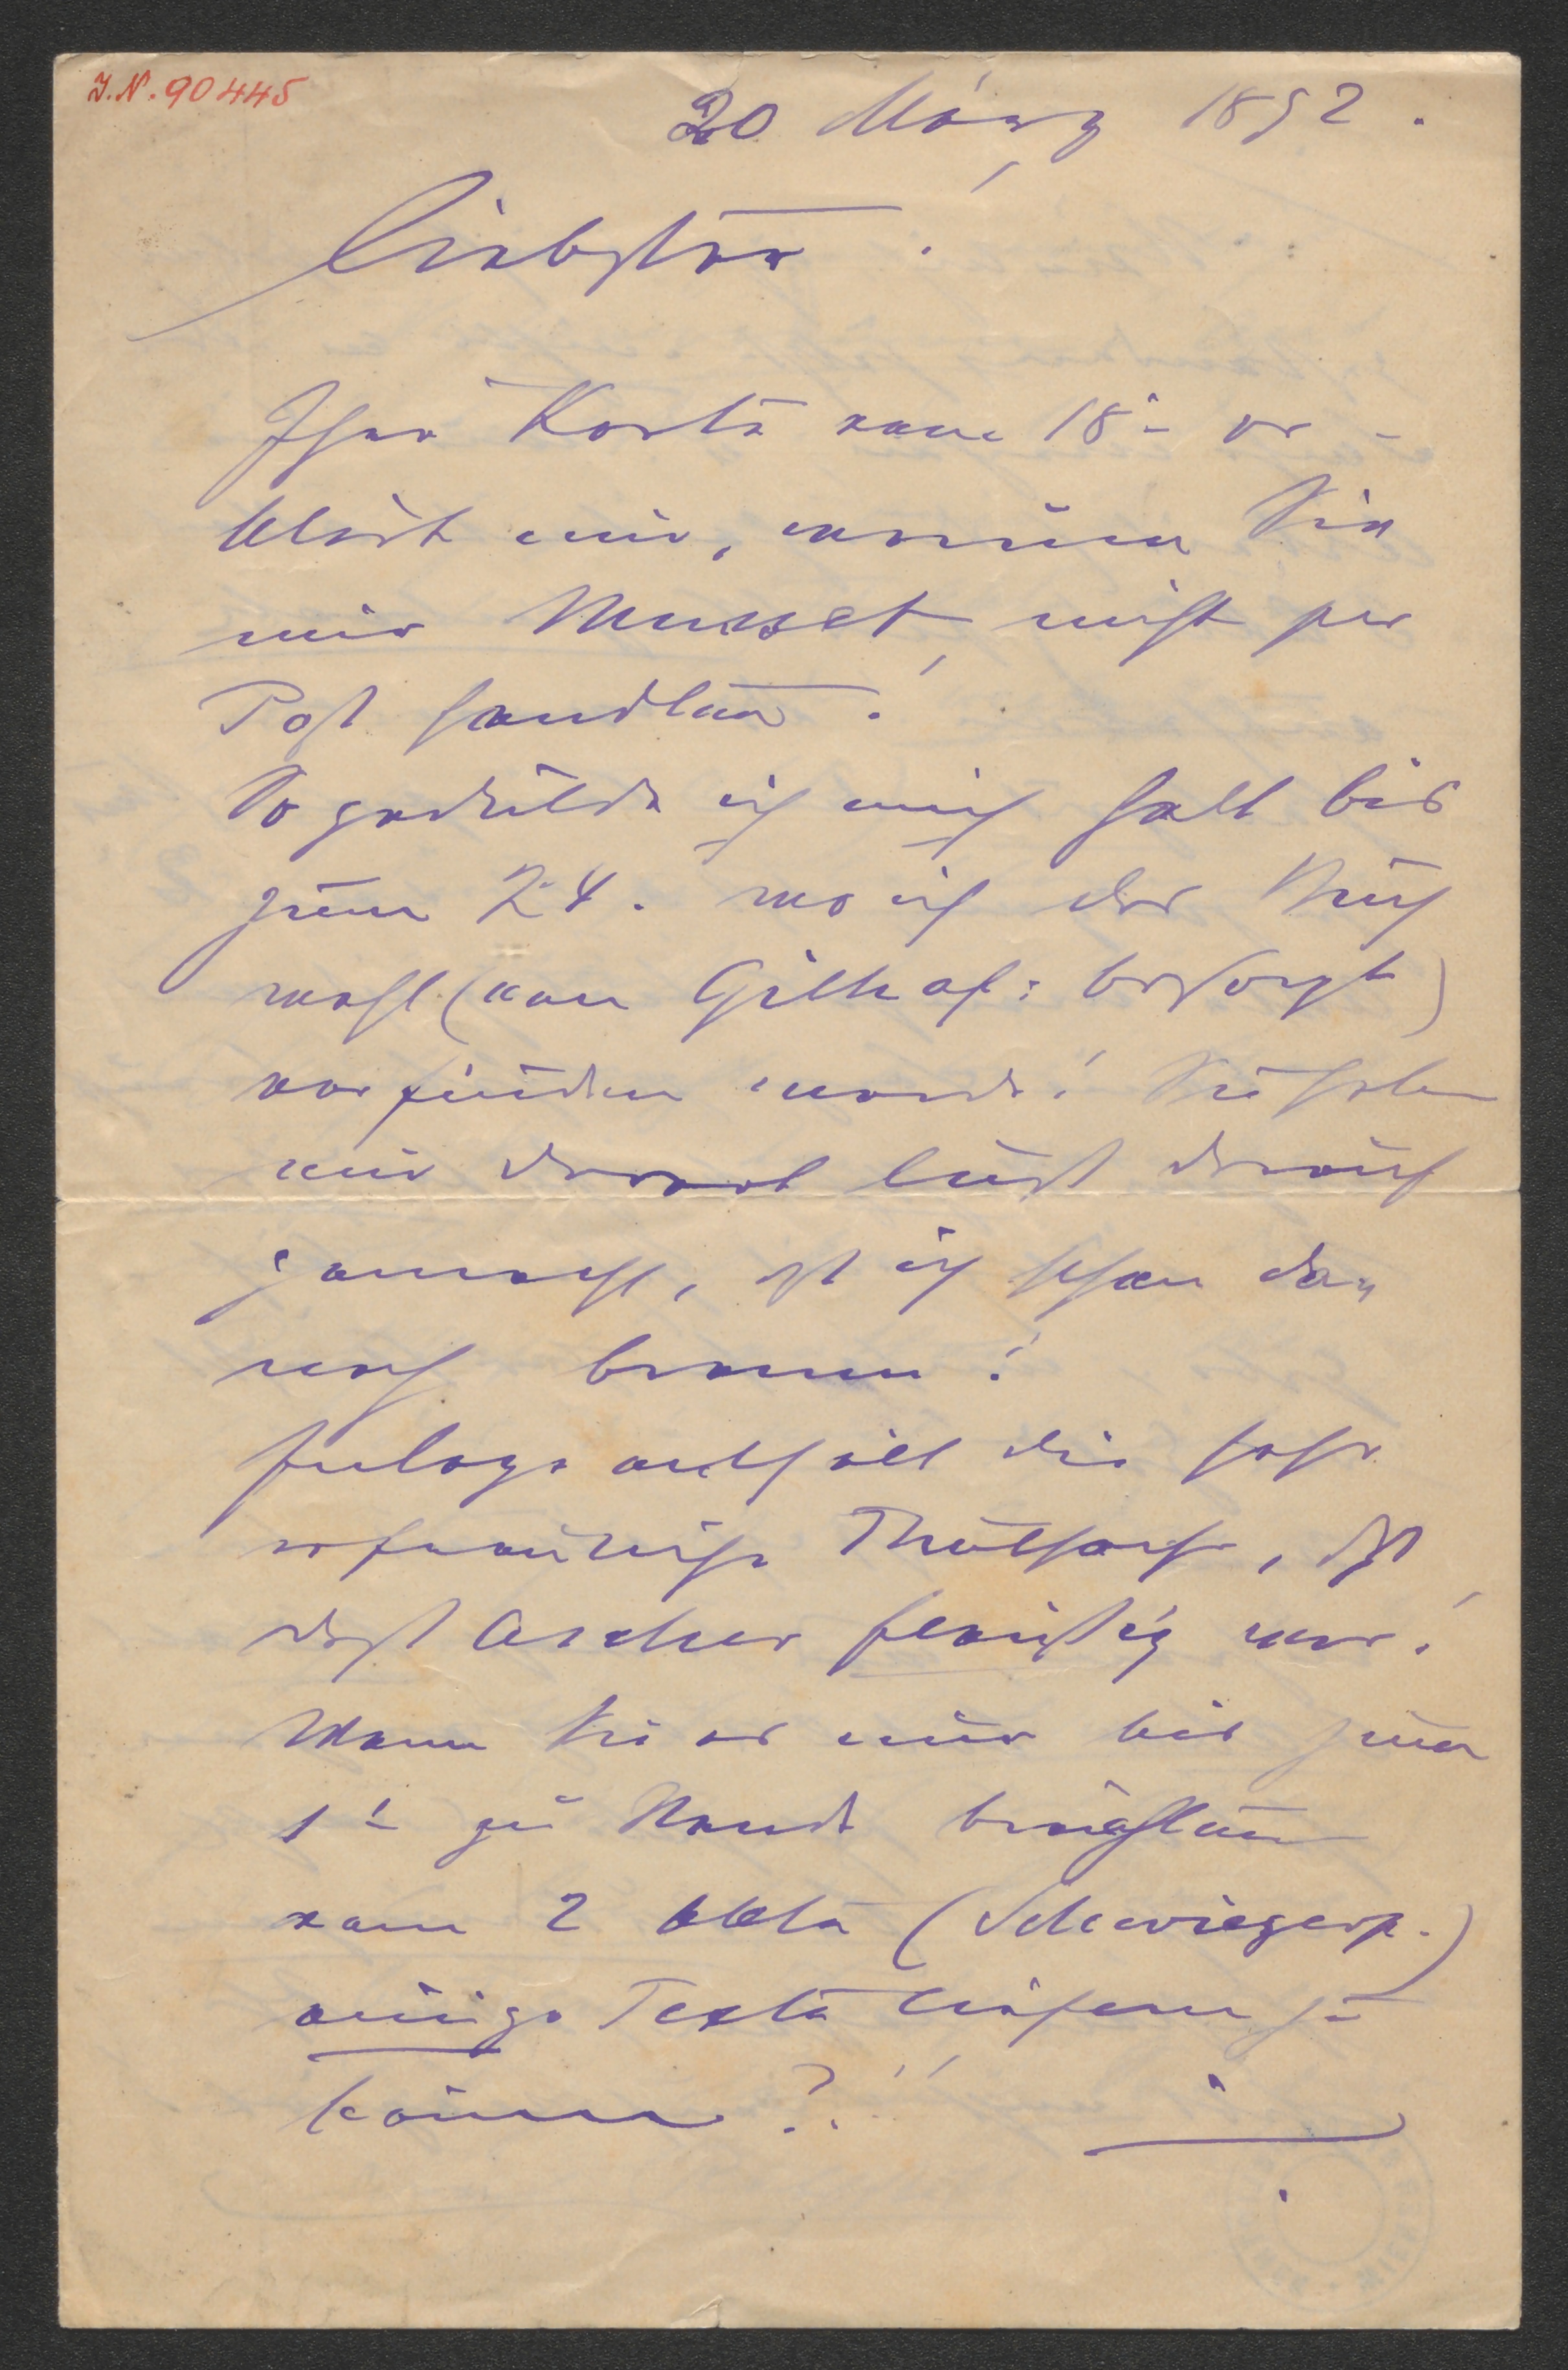 I.N. 90445
20 März 1892.
Liebster!
Ihre Karte vom 18t er-
klärt mir, warum Sie
mir Musset nicht per
Post sandten!
So gedulde ich mich halt bis
zum 24. wo ich das Buch
wohl (von Gilhof: besorgt)
vorfinden werde! Sie haben
mir derart Lust darauf
gemacht, dß ich schon da-
nach brenne!
Inlage enthält die sehr
erfreuliche Thatsache, dß
dß Ascher fleißig war!
Wenn Sie es nur bis zum
1t zu Stande brächten
vom 2 Akte (Schwiegerp.)
einige Texte liefern zu
können?!!